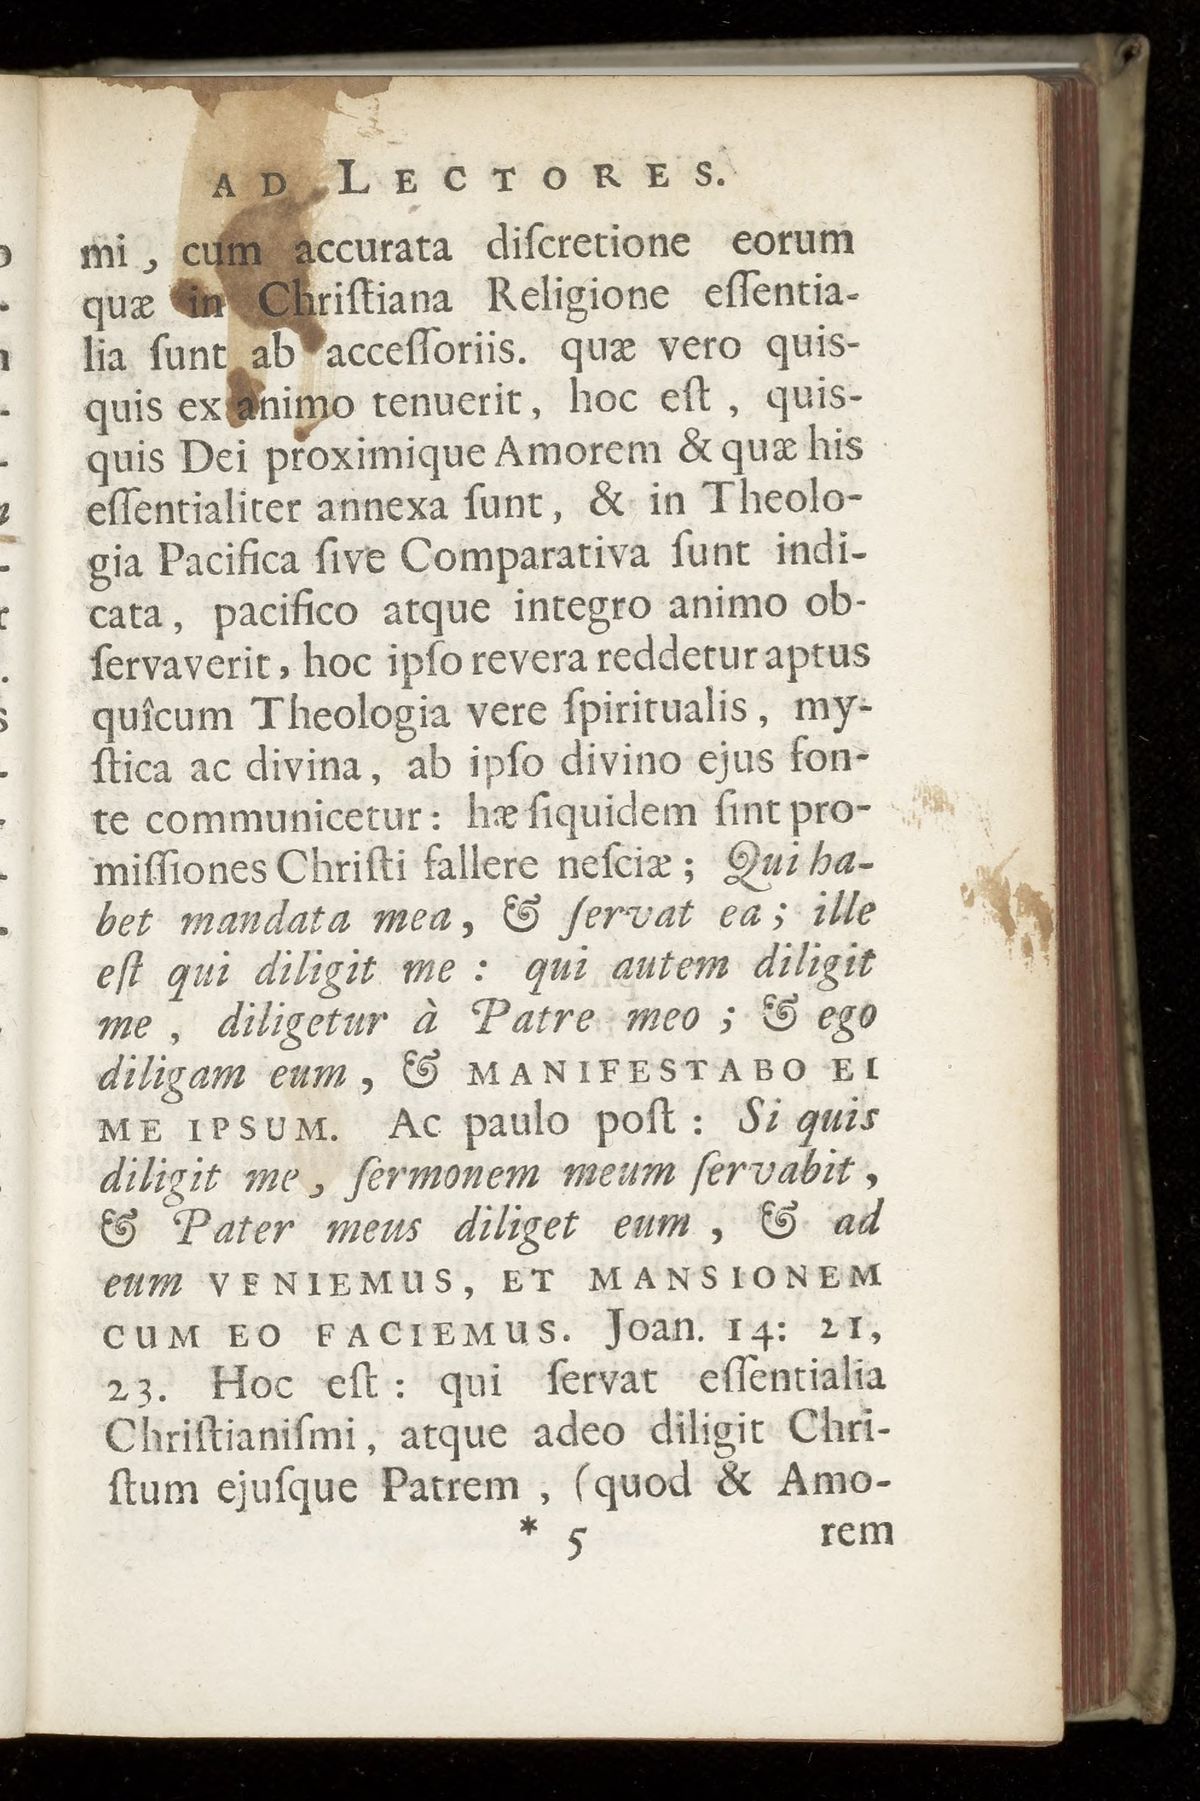 AD LECTORES.
mi, cum accurata diſcretione eorum
quæ in Chriſtiana Religione eſſentia-
lia ſunt ab acceſſoriis. quæ vero quis-
quis ex animo tenuerit, hoc eſt, quis-
quis Dei proximique Amorem & quæ his
eſſentialiter annexa ſunt, & in Theolo-
gia Pacifica ſive Comparativa ſunt indi-
cata, pacifico atque integro animo ob-
ſervaverit, hoc ipſo revera reddetur aptus
quîcum Theologia vere ſpiritualis, my-
ſtica ac divina, ab ipſo divino ejus fon-
te communicetur: hæ ſiquidem ſint pro-
miſſiones Chriſti fallere neſciæ; Qui ha-
bet mandata mea, & ſervat ea; ille
eſt qui diligit me: qui autem diligit
me, diligetur à Patre meo; & ego
diligam eum, & MANIFESTABO EI
ME IPSUM. Ac paulo poſt: Si quis
diligit me, ſermonem meum ſervabit,
& Pater meus diliget eum, & ad
eum VENIEMUS, ET MANSIONEM
CUM EO FACIEMUS. Joan. 14: 21,
23. Hoc eſt: qui ſervat eſſentialia
Chriſtianiſmi, atque adeo diligit Chri-
ſtum ejuſque Patrem, (quod & Amo-
* 5 rem